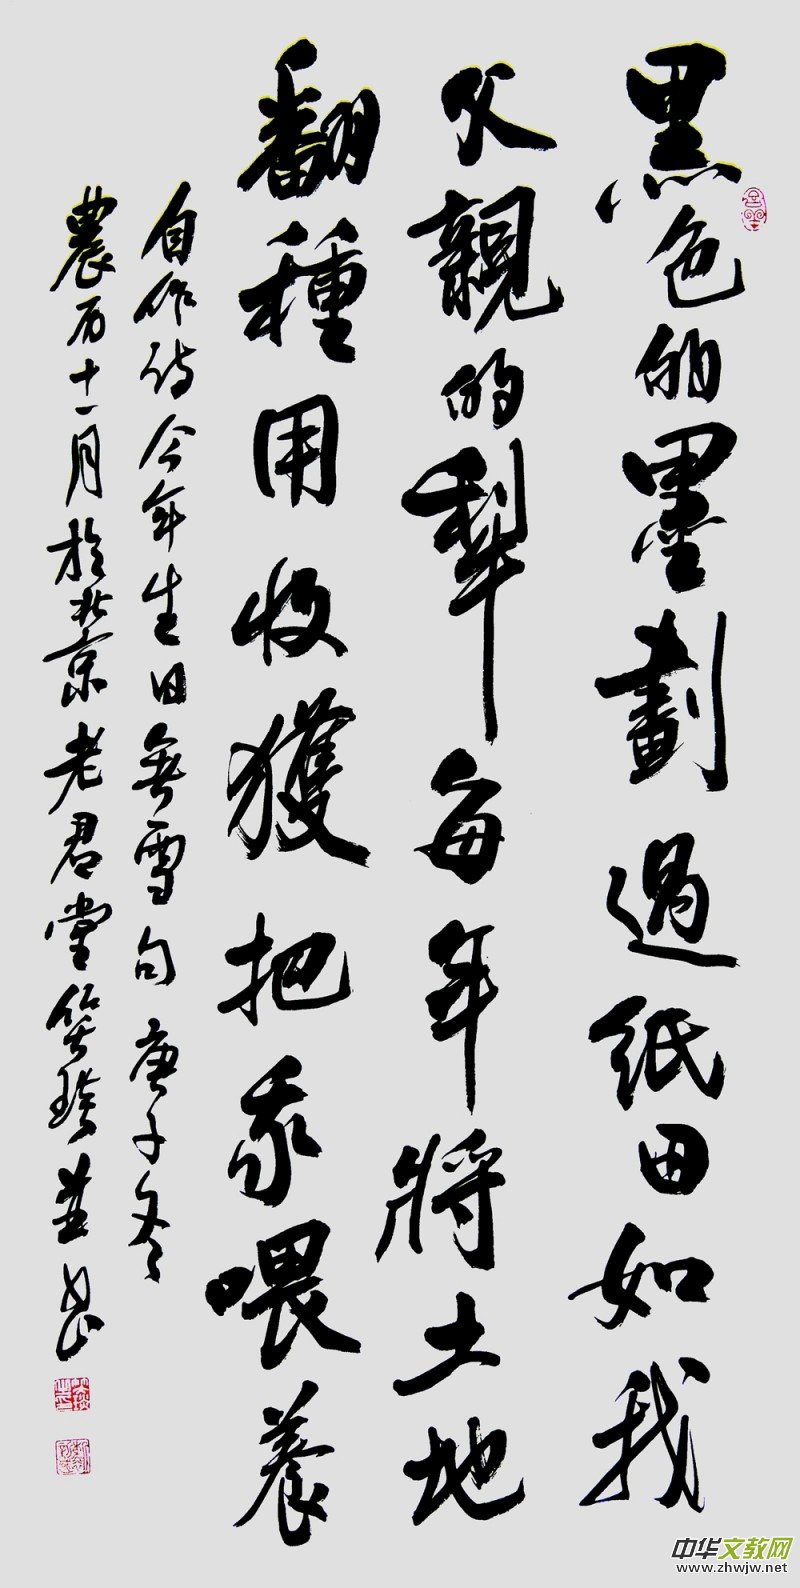 黑色的墨劃過紙田如我
父親的犁每年將土地
翻種用收獲把我喂養
自作诗今年生日無雪句庚子冬
農历十一月於北京老君堂
並书
中华文教网
www.zhwjw.net